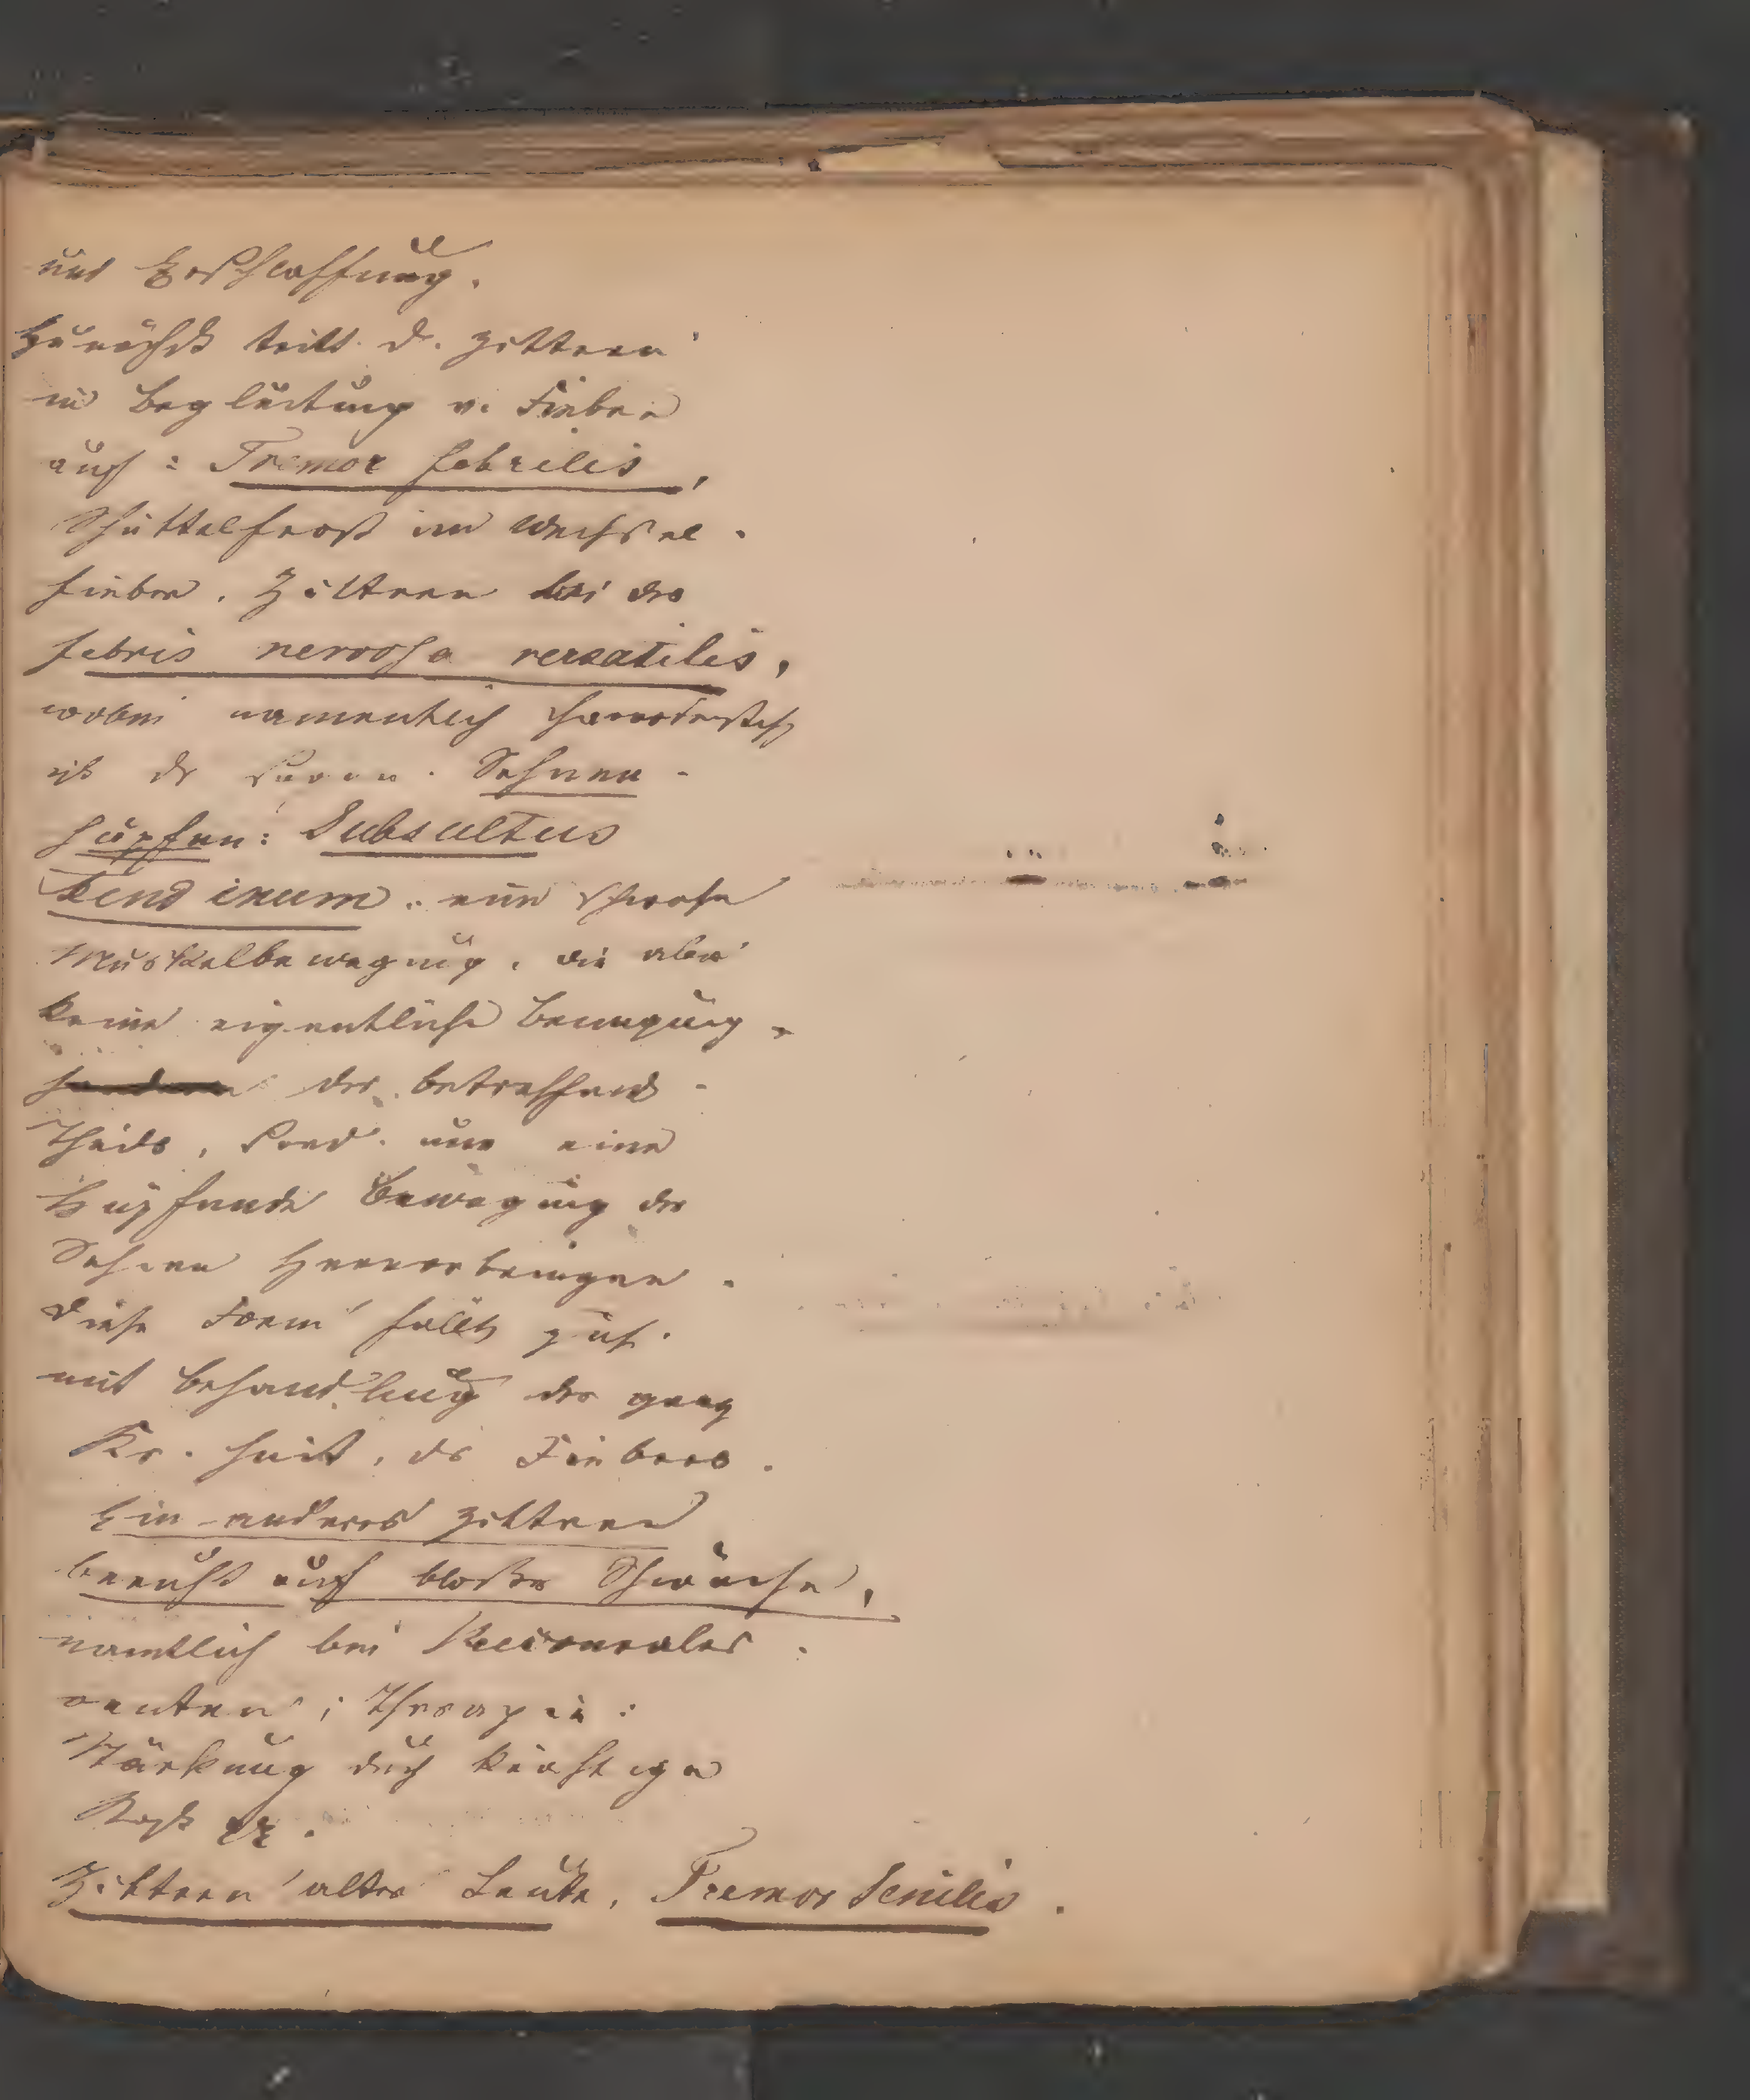 und Erschlaffung.
Zunächst tritt d. Zittern
in Begleitung v. Fieber
auf: Tremor febrilis,
Schüttelfrost im Wechsel-
fieber. Zittern bei der
febris nervosa versatilis,
wobei namentlich characteristisch
ist das sogen. Sehnen-
hüpfen: Subsultus
tendinum. eine schwache
Muskelbewegung, die aber
keine eigentliche Bewegung
sondern des betreffend-
Theils, sond. nur eine
hüpfende Bewegung der
Sehnen hervorbringen.
Diese Form fällt
mit Behandlung der ganz
Kr.heit, des Fiebers.
Ein anderes Zittern
beruht auf bloßer Schwäche,
namtlich bei Reconvales-
centen; Therapie:
Stärkung durch kräftige
Kost
Zittern alter Leute, Tremor Senilis.